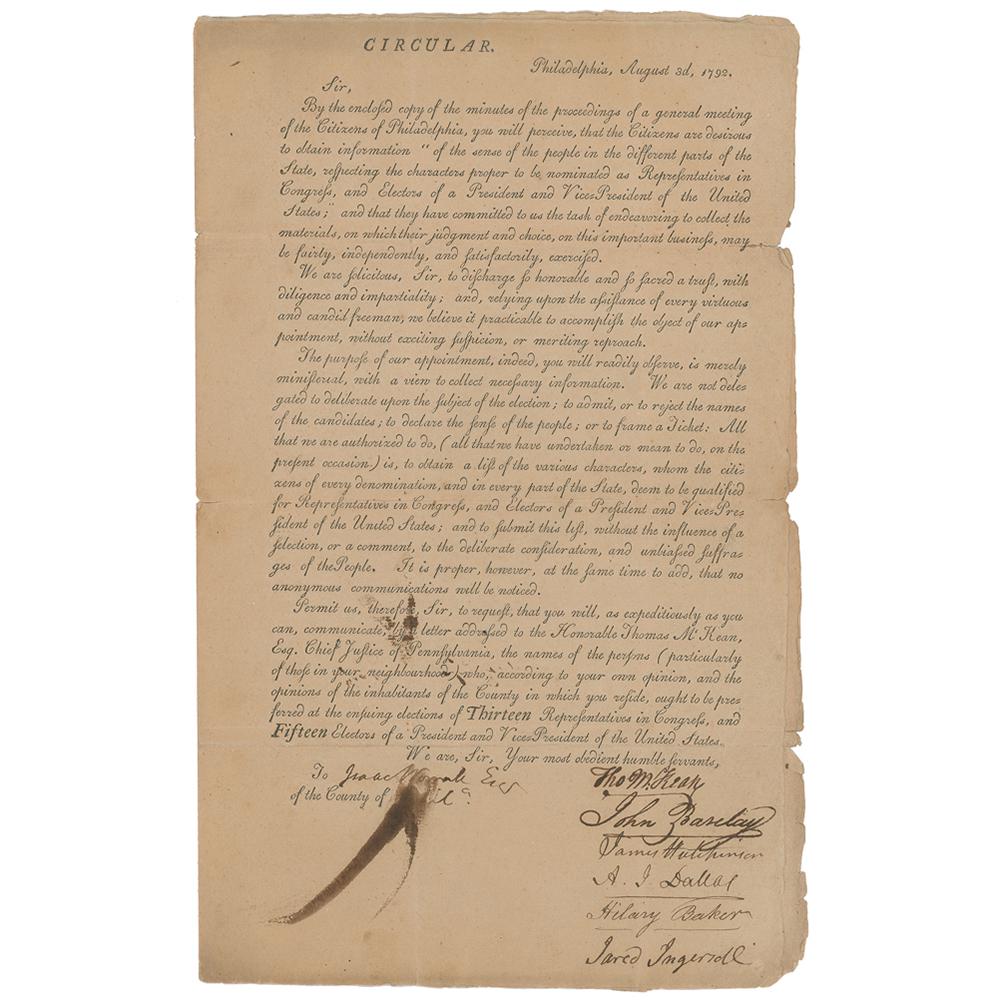 CIRCULAR.
Philadelphia, August 3d, 1792.
Sir,
By the encloſed copy of the minutes of the proceedings of a general meeting
of the Citizens of Philadelphia, you will perceive, that the Citizens are desirous
to obtain information " of the sense of the people in the different parts of the
State, reſpecting the characters proper to be nominated as Repreſentatives in
Congreſs, and Electors of a President and Vice=President of the United
States;" and that they have committed to us the task of endeavoring to collect the
materials, on which their judgment and choice, on this important buſineſs, may
be fairly, independently, and ſatisfactorily, exerciſed.
We are ſolicitous, Sir, to diſcharge ſo honorable and ſo ſacred a truſt, with
diligence and impartiality; and, relying upon the aſſiſtance of every virtuous
and candid freeman, we believe it practicable to accompliſh the object of our ap=
pointment, without exciting ſuſpicion, or meriting reproach.
The purpoſe of our appointment, indeed, you will readily obſerve, is merely
miniſterial, with a view to collect neceſſary information. We are not dele=
gated to deliberate upon the ſubject of the election; to admit, or to reject the names
of the candidates; to declare the ſenſe of the people; or to frame a Ticket: All
that we are authorized to do, (all that we have undertaken or mean to do, on the
preſent occaſion) is, to obtain a liſt of the various characters, whom the citi=
zens of every denomination, and in every part of the State, deem to be qualified
for Repreſentatives in Congreſs, and Electors of a Preſident and Vice=Pre=
ſident of the United States; and to ſubmit this liſt, without the influence of a
ſelection, or a comment, to the deliberate conſideration, and unbiaſſed ſuffra=
ges of the People. It is proper, however, at the ſame time to add, that no
anonymous communications will be noticed.
Permit us, therefore, Sir, to requeſt, that you will, as expeditiously as you
can, communicate, by a letter addreſſed to the Honorable Thomas McKean,
Esq. Chief Juſtice of Pennſylvania, the names of the perſons (particularly
of thoſe in your neighbourhood) who, according to your own opinion, and the
opinions of the inhabitants of the County in which you reſide, ought to be pre=
ferred at the enſuing elections of Thirteen Repreſentatives in Congreſs, and
Fifteen Electors of a Preſident and Vice=Preſident of the United States.
We are, Sir, Your most obedient humble ſervants,
To Isaac Esqr
of the County of
Tho McKean
John Barclay
James Hutchinson
A. J. Dallas
Hilary Baker
Jared Ingersoll